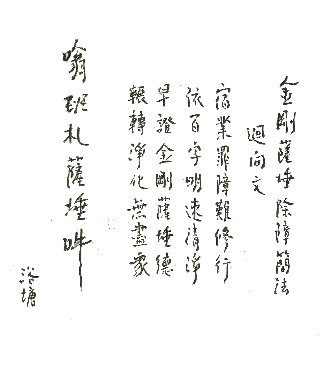 金剛薩埵除障簡法
迴向文
宿業罪障難修行
依百字明速清淨
早證金剛薩埵德
輾轉淨化無盡眾
嗡班札薩埵吽
浴塘